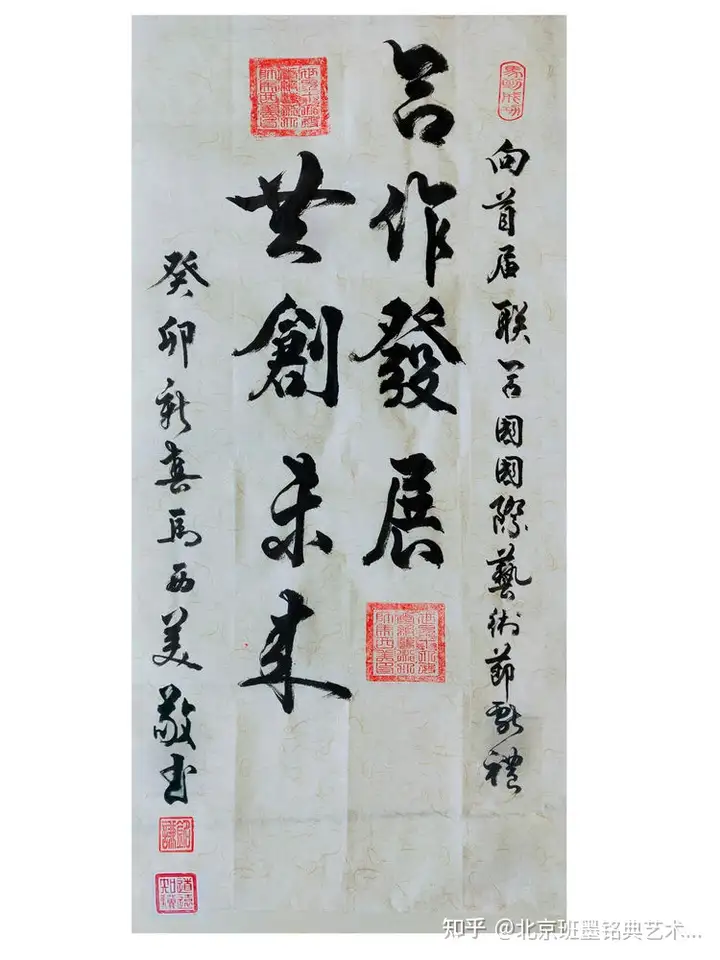 向首届联合國國際藝術節獻禮
合作發展
共創未来
癸卯新春馬西美敬书
知乎 @北京班墨铭典艺术...